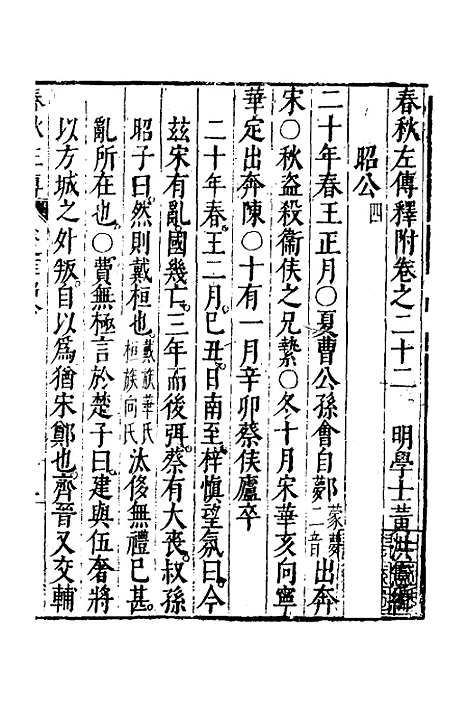 春秋左傳釋附卷之二十二　明學士黃洪憲輯
昭公四
二十年春王正月○夏曹公孫會自鄸蒙夢二音出奔
宋○秋盜殺衞侯之兄縶○冬十月宋華亥向寧
華定出奔陳○十有一月辛卯蔡侯廬卒
二十年春王二月己丑日南至梓慎望氛曰今
茲宋有亂國幾亡三年而後弭蔡有大喪叔孫
昭子曰然則戴桓也戴族華氏桓族向氏汰侈無禮已甚
亂所在也○費無極言於楚子曰建與伍奢將
以方城之外叛自以爲猶宋鄭也齊晉又交輔